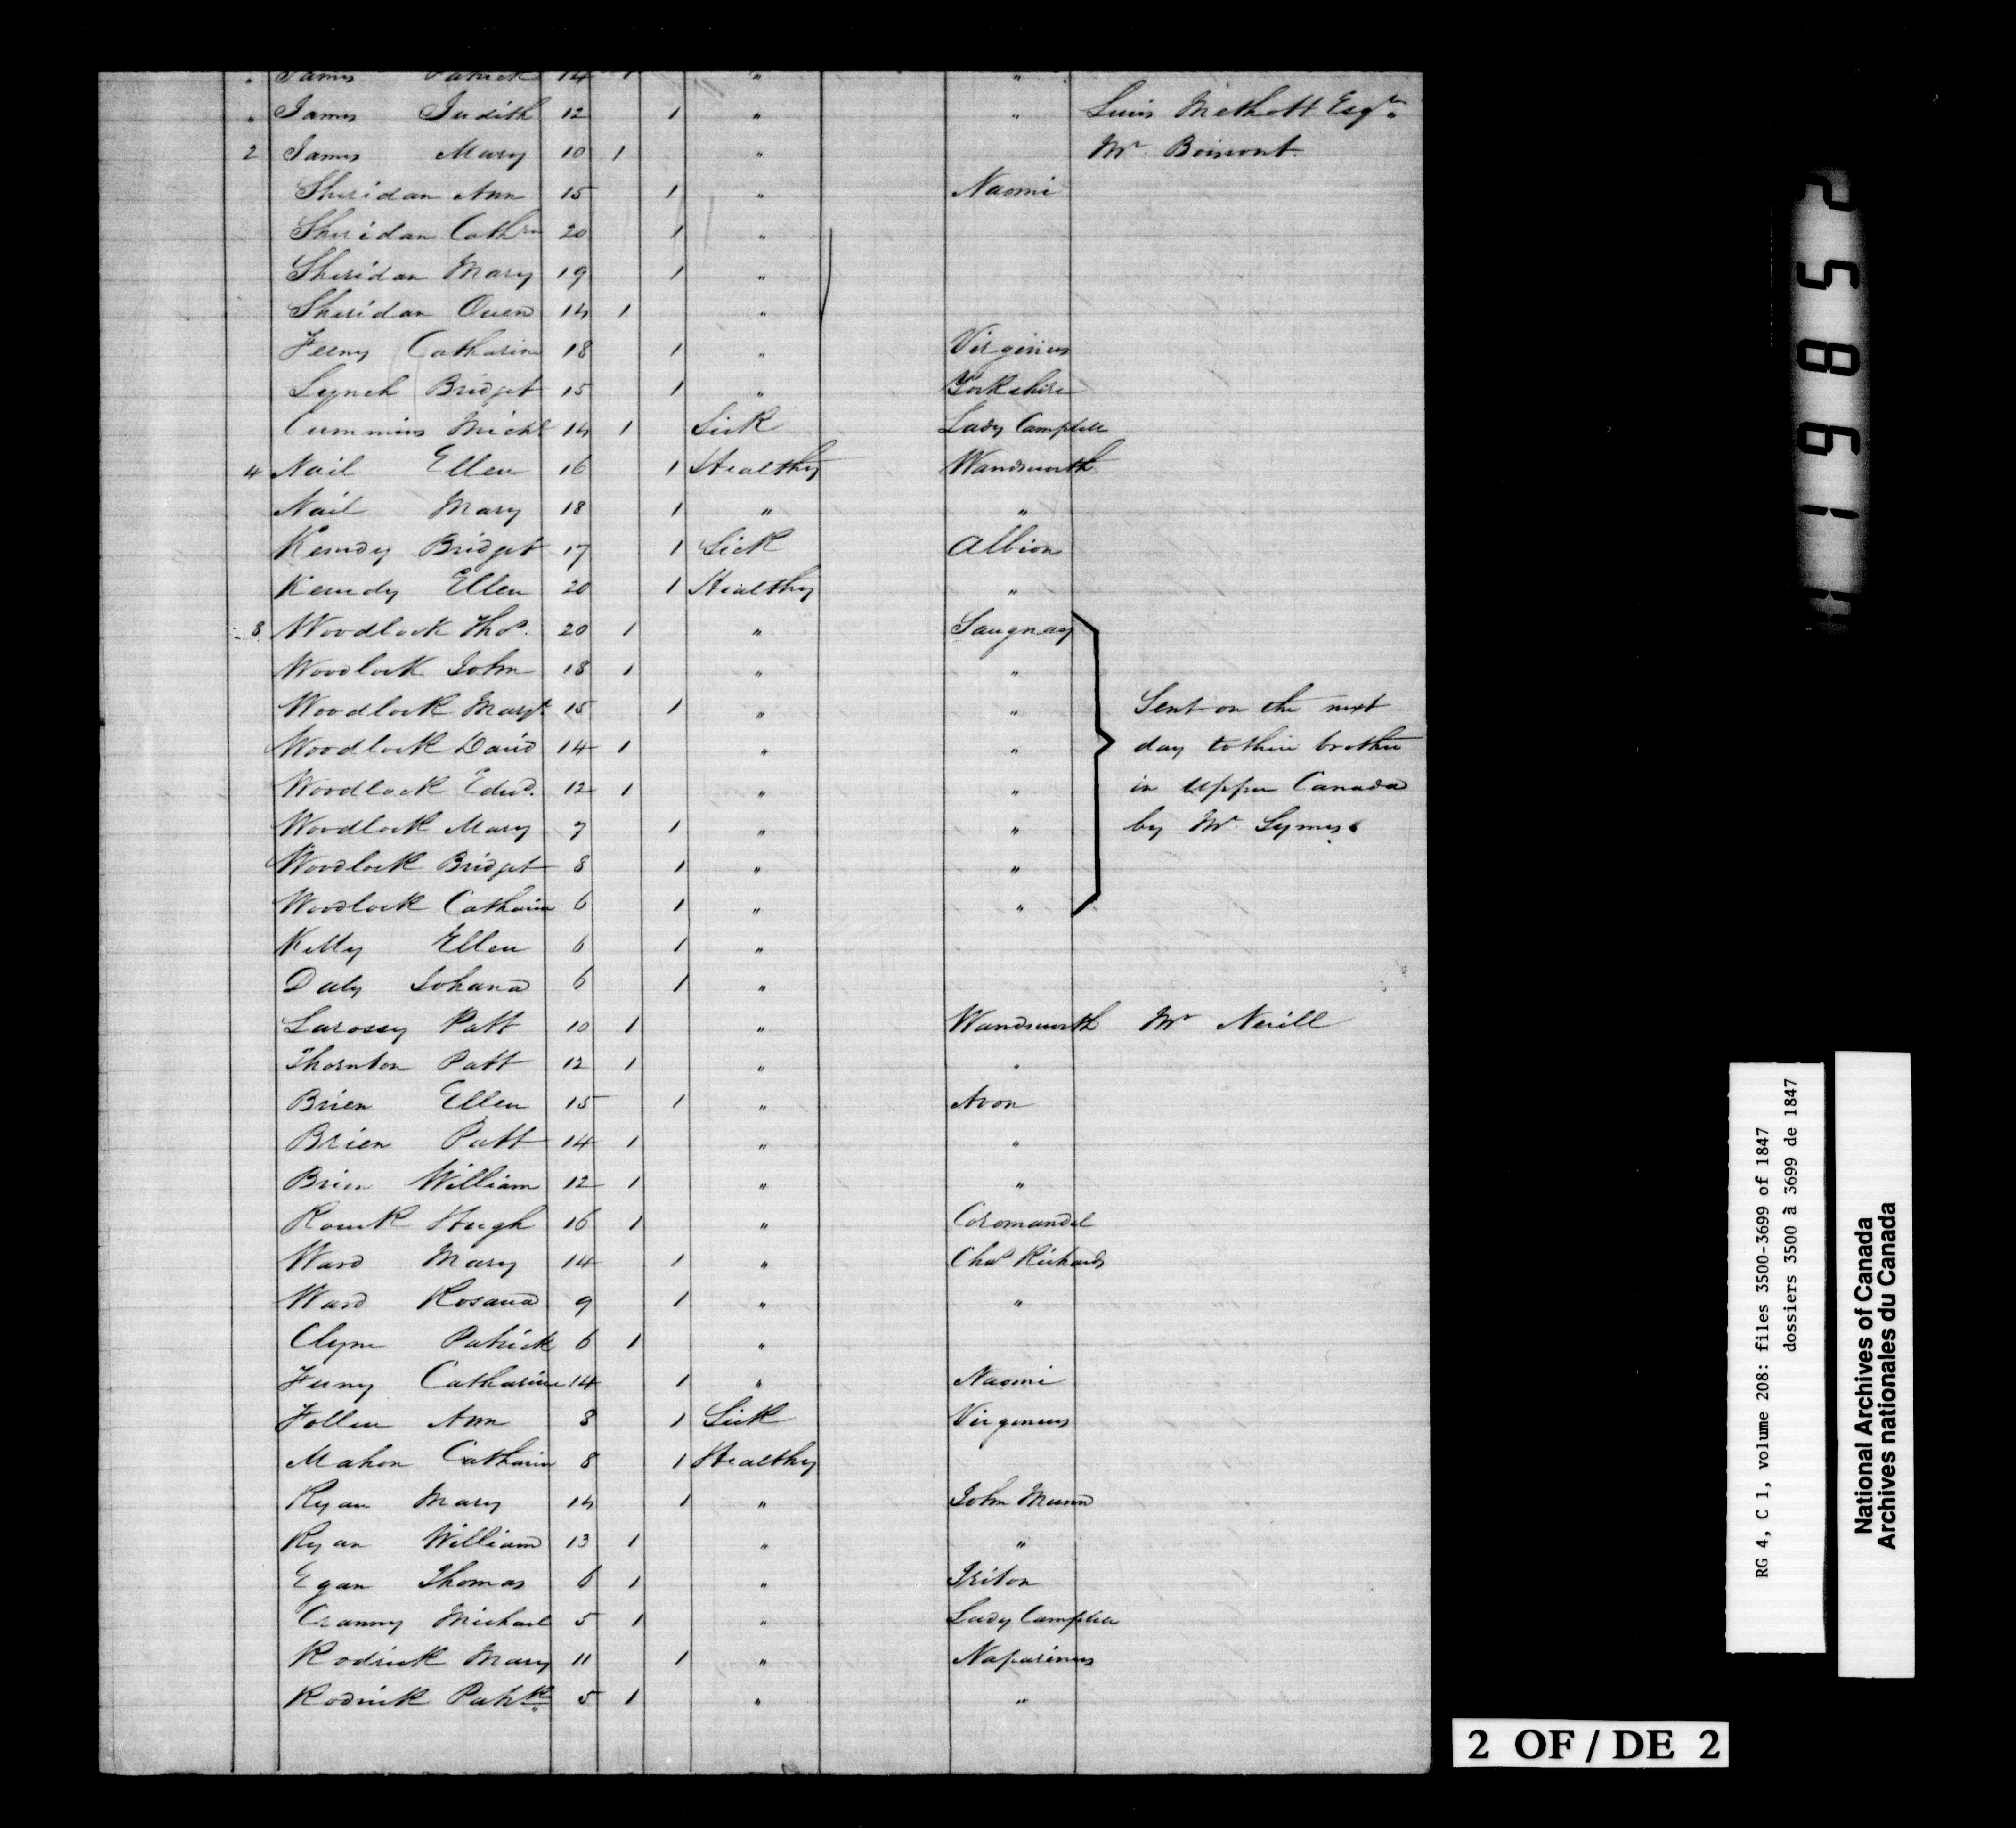 " James Patrick 14 1 " "
" James Judith 12 1 " " Louis Methott Esqr.
2 James Mary 10 1 " Mr. Boisvont.
Sheridan Ann 15 1 " Naomi
Sheridan Cathrn 20 1 "
Sheridan Mary 19 1 "
Sheridan Owen 14 1 "
Feeny Catharine 18 1 " Virginius
Lynch Bridget 15 1 " Yorkshire
Cummins Michl 14 1 Sick Lady Campbell
4 Nail Ellen 16 1 Healthy Wandsworth
Nail Mary 18 1 " "
Kennedy Bridget 17 1 Sick Albion
Kennedy Ellen 20 1 Healthy "
8 Woodlock Thos. 20 1 " Saugnay
Woodlock John 18 1 " "
Woodlock Margt. 15 1 " " Sent on the next
Woodlock David 14 1 " " day to their brother
Woodlock Edwd. 12 1 " " in Upper Canada
Woodlock Mary 7 1 " " by Mr. Symes.
Woodlock Bridget 8 1 " "
Woodlock Catharin 6 1 " "
Kelly Ellen 6 1 "
Daly Johana 6 1 "
Larossy Patt 10 1 " Wandsworth Mr Nevill
Thornton Patt 12 1 " "
Brien Ellen 15 1 " Avon
Brien Patt 14 1 " "
Brien William 12 1 " "
Rourk Hugh 16 1 " Coromandel
Ward Mary 14 1 " Chas Richards
Ward Rosana 9 1 " "
Clyne Patrick 6 1 "
Feeny Catharine 14 1 " Naomi
Follen Ann 8 1 Sick Virgineus
Mahon Catharin 8 1 Healthy
Ryan Mary 14 1 " John Munn
Ryan William 13 1 " "
Egan Thomas 6 1 " Triton
Cranny Michael 5 1 " Lady Campbell
Rodrick Mary 11 1 " Naparimus
Rodrick Patk. 5 1 " "
2 OF / DE 2
RG 4, C 1, volume 208: files 3500-3699 of 1847
dossiers 3500 à 3699 de 1847
National Archives of Canada
Archives nationales du Canada